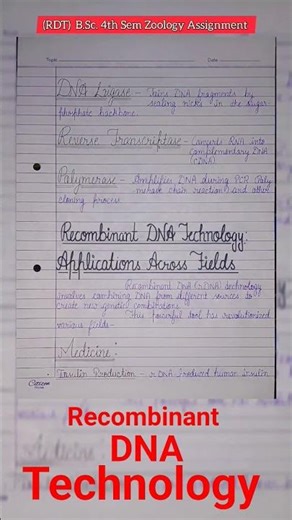 (RDT) B.Sc. 4th Sem Zoology Assignment
Topic
Date
DNA Ligase - Joins DNA fragments by
sealing nicks in the sugar
phosphate backbone.
Reverse Transcriptase - Converts RNA into
complementary DNA
(cDNA)
Polymerase - Amplifies DNA during PCR (Poly
merase chain reaction) and other
cloning process
Recombinant DNA Technology:
Applications Across Fields
Recombinant DNA (rDNA) technology
involves combining DNA from different sources to
create new genetic combinations.
This powerful tool has revolutionized
various fields-
Medicine:
Insulin Production - rDNA-produced human insulin
Citizen
Recombinant
DNA
Technology